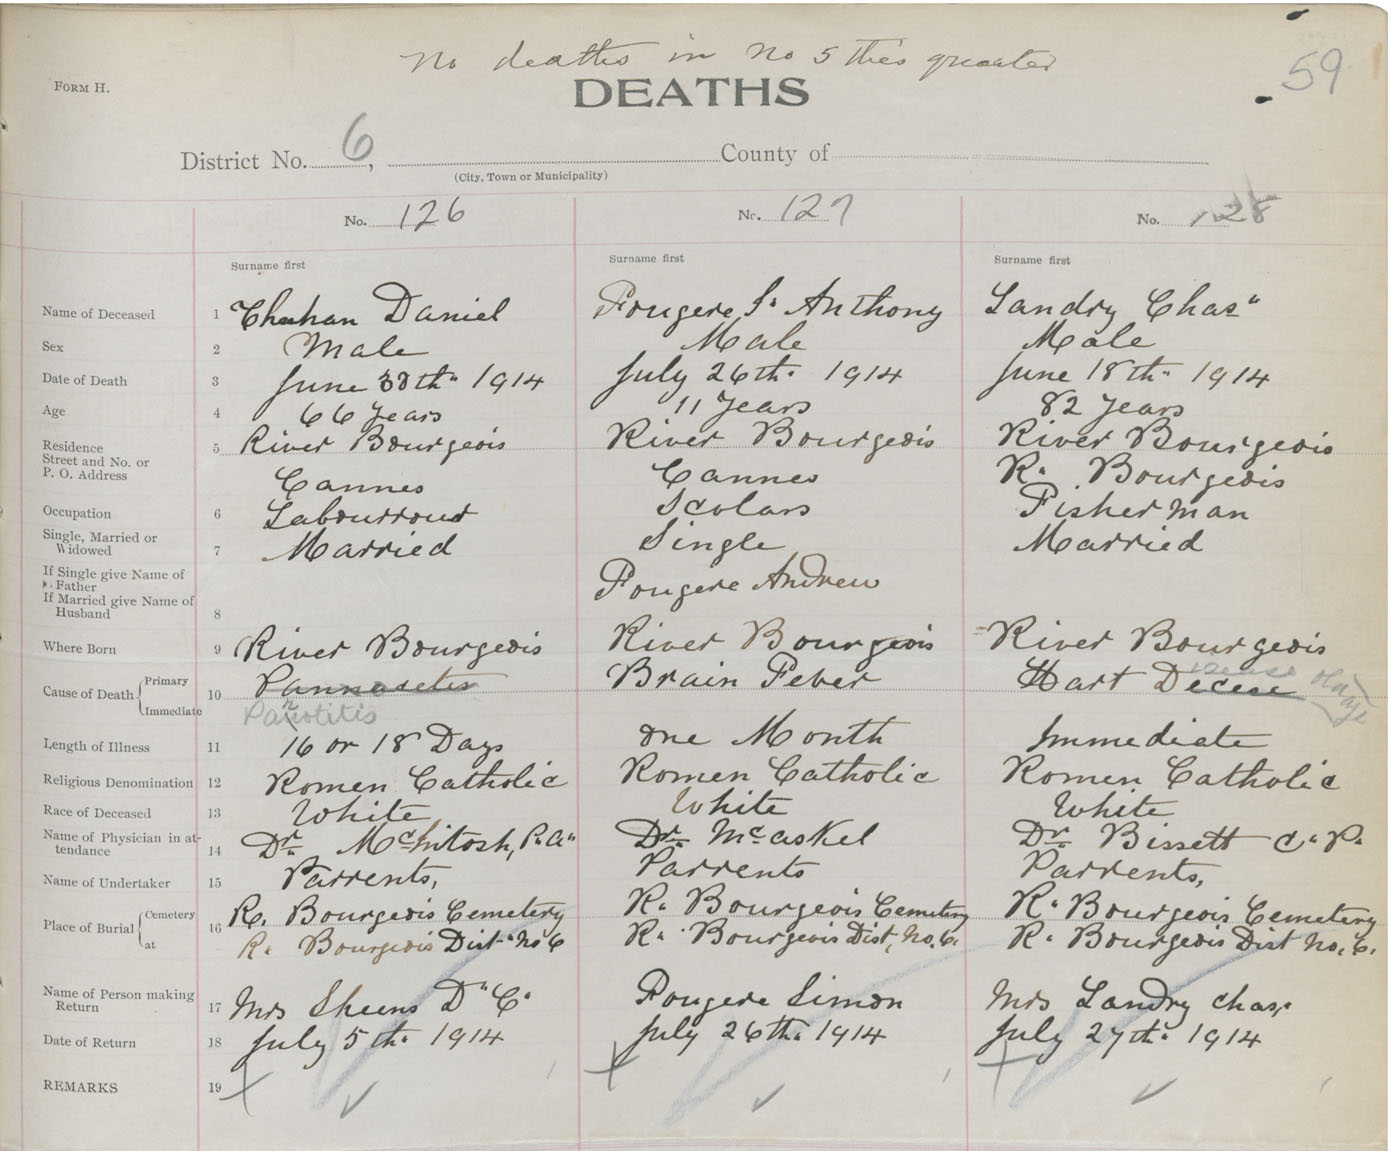 No deaths in No 5 this quarter
59
FORM H.
DEATHS
District No. 6, County of
(City, Town or Municipality)
No. 126 No. 127 No. 128
Surname first Surname first Surname first
Name of Deceased 1 Daniel Fougere S. Anthony Landry Chas"
Sex 2 Male Male Male
Date of Death 3 June 30th. 1914 July 26th. 1914 June 18th. 1914
Age 4 66 Years 11 Years 82 Years
Residence 5 River Bourgeois River Bourgeois River Bourgeois
Street and No. or
P. O. Address Cannes Cannes R. Bourgeois
Occupation 6 Scolars Fisher man
Single, Married or
Widowed 7 Married Single Married
If Single give Name of
Father Fougere Andrew
If Married give Name of
Husband 8
Where Born 9 River Bourgeois River Bourgeois River Bourgeois
Cause of Death Primary Brain Fever Hart Decese old age
10
Immediate
Length of Illness 11 16 or 18 Days one Month Immediate
Religious Denomination 12 Romen Catholic Romen Catholic Romen Catholic
Race of Deceased 13 White White White
Name of Physician in at-
tendance 14 Dr. McIntosh, P.a" Dr. McCaskel Dr. Bissett C. P.
Name of Undertaker 15 Parrents, Parrents Parrents,
Place of Burial Cemetery 16 R. Bourgeois Cemetery R. Bourgeois Cemetery R. Bourgeois Cemetery
at R. Bourgeois Dist. No 6 R. Bourgeois Dist, No. 6. R. Bourgeois Dist No. 6.
Name of Person making
Return 17 Mrs D" C. Fougere Simon Mrs Landry Chas.
Date of Return 18 July 5th. 1914 July 26th. 1914 July 27th. 1914
REMARKS 19